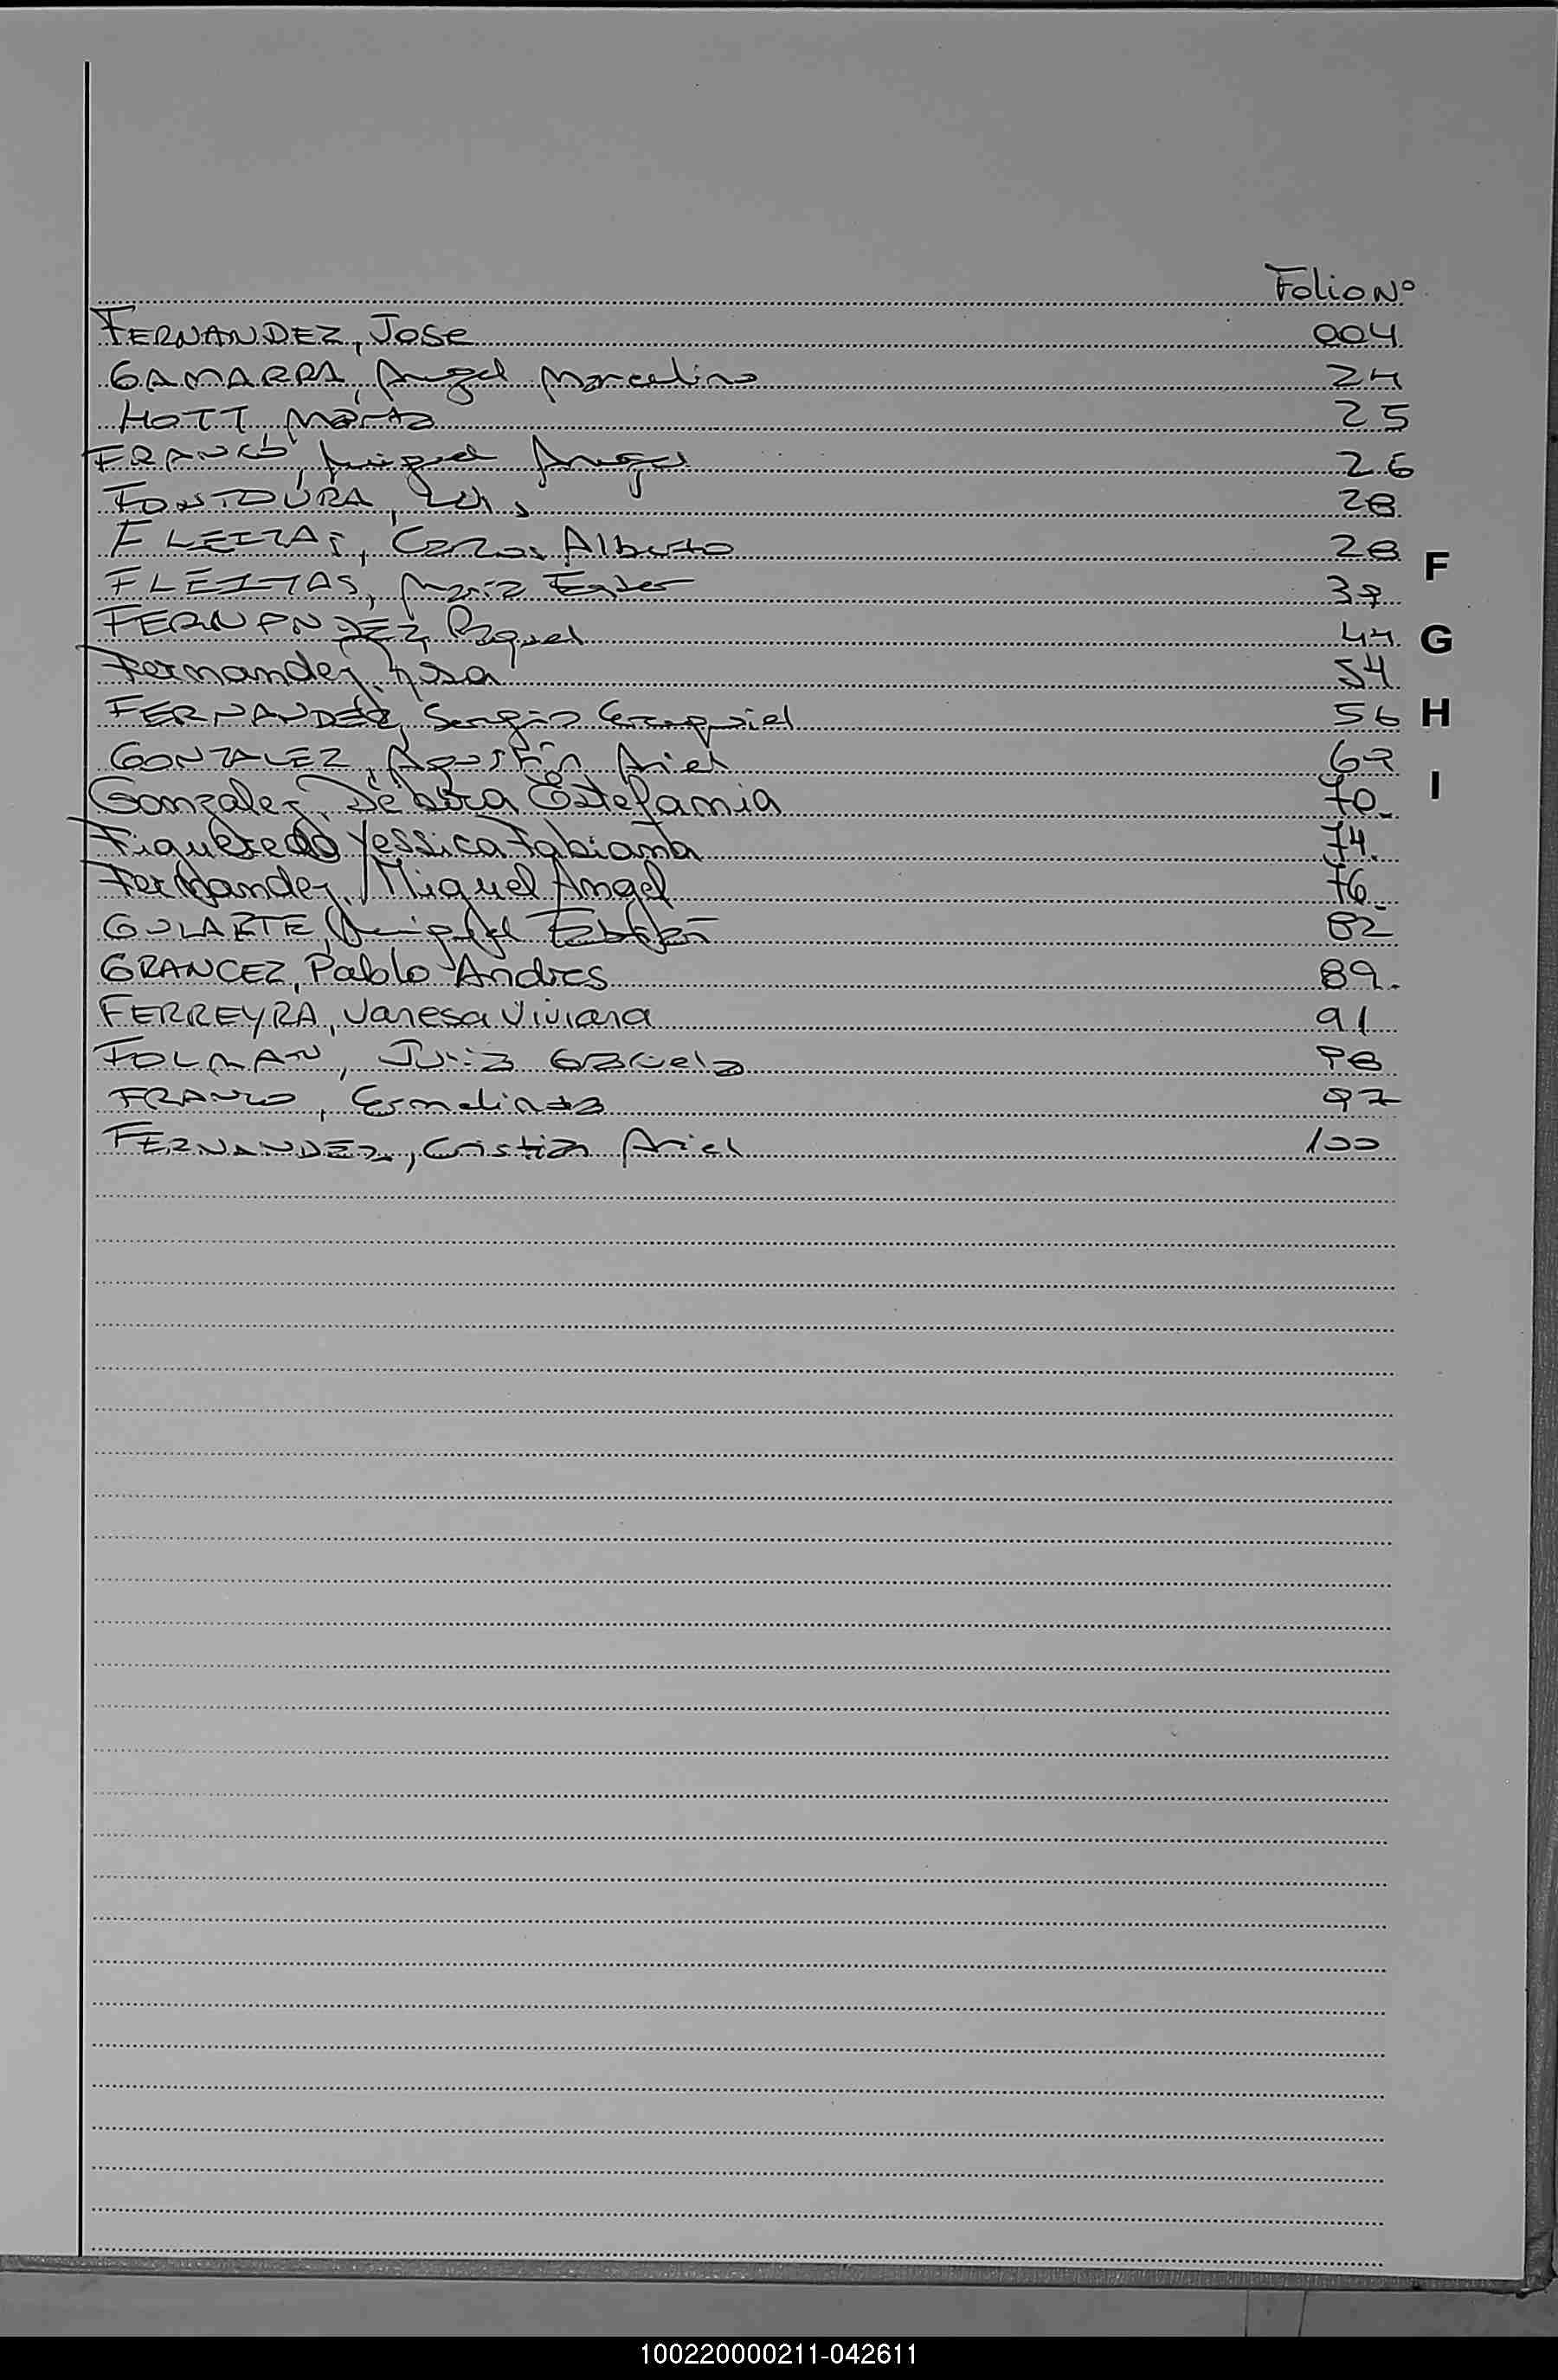 Folio Nº
FERNANDEZ, Jose 004
GAMARRA, Angel Marcelino 24
HOTT, Marta 25
FRANCO, Miguel Angel 26
FONTOURA, Luis 28
FLEITAS, Carlos Alberto 28
FLEITAS, Maria Ester
F
FERNANDEZ, Raquel 44
G
Fernandez, Rosa 54
FERNANDEZ, Sergio Ezequiel 56
H
GONZALEZ, Agustin Ariel
Gonzalez, Débora Estefania 70
I
Figueredo Yessica Fabiana 74
Fernandez, Miguel Angel 76
GULARTE, Miguel Fabián 82
GRANCEZ, Pablo Andres 89
FERREYRA, Vanesa Viviana 91
FOLMAN, Graciela
FRANCO, Ermelinda 97
FERNANDEZ, Cristian Ariel 100
100220000211-042611